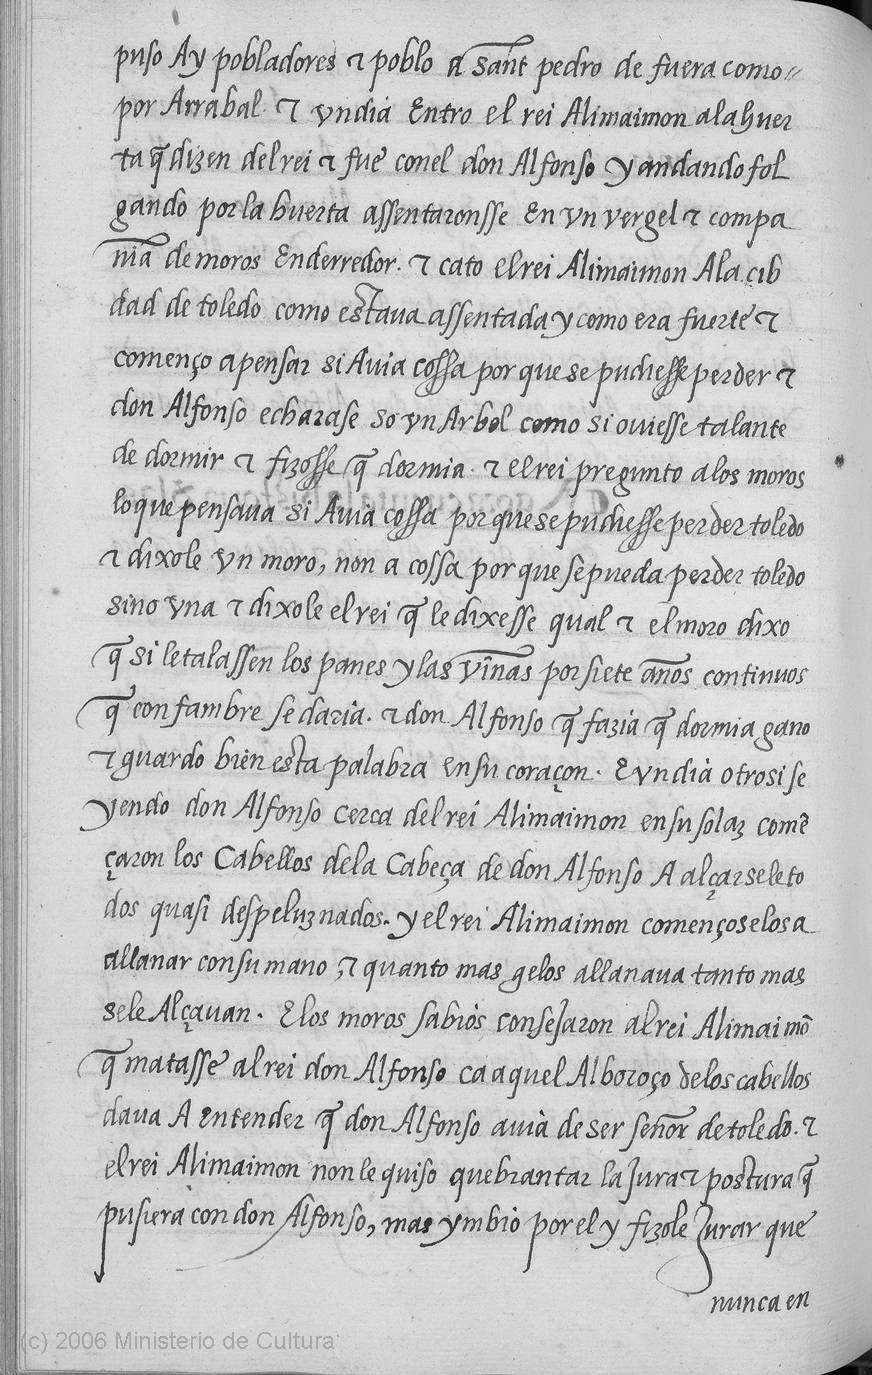 puso Ay pobladores τ poblo a sant pedro de fuera como=
por Arrabal. τ vn dia Entro el rei Alimaimon ala huer
ta q̃ dizen del rei τ fue conel don Alfonso y andando fol
gando por la huerta assentaronsse En vn vergel τ compa
ñia de moros Enderredor. τ cato el rei Alimaimon Ala cib
dad de toledo como estaua assentada y como era fuerte τ
començo a pensar si Auia cossa por que se pudiesse perder τ
don Alfonso echarase so vn Arbol como si ouiesse talante
de dormir τ fizosse q̃ dormia. τ el rei pregunto a los moros
lo que pensaua si Auia cossa por que se pudiesse perder toledo
τ dixole vn moro, non a cossa por que se pueda perder toledo
sino vna τ dixole el rei q̃ le dixesse qual τ el moro dixo
q̃ si le talassen los panes y las viñas por siete años continuos
q̃ con fambre se daria. τ don Alfonso q̃ fazia q̃ dormia gano
τ guardo bien esta palabra en su coraçon. E vn dia otrosi se
yendo don Alfonso cerca del rei Alimaimon en su solaz comẽ
çaron los Cabellos dela Cabeça de don Alfonso A alçarsele to
dos quasi despeluznados. y el rei Alimaimon començoselos a
allanar con su mano, τ quanto mas gelos allanaua tanto mas
sele Alçauan. E los moros sabios consejaron al rei Alimaimõ
q̃ matasse al rei don Alfonso ca aquel Alboroço de los cabellos
daua A Entender q̃ don Alfonso auia de ser señor de toledo. τ
el rei Alimaimon non le quiso quebrantar la Jura τ postura q̃
pusiera con don Alfonso, mas ymbio por el y fizole Jurar que
nunca en
(c) 2006 Ministerio de Cultura